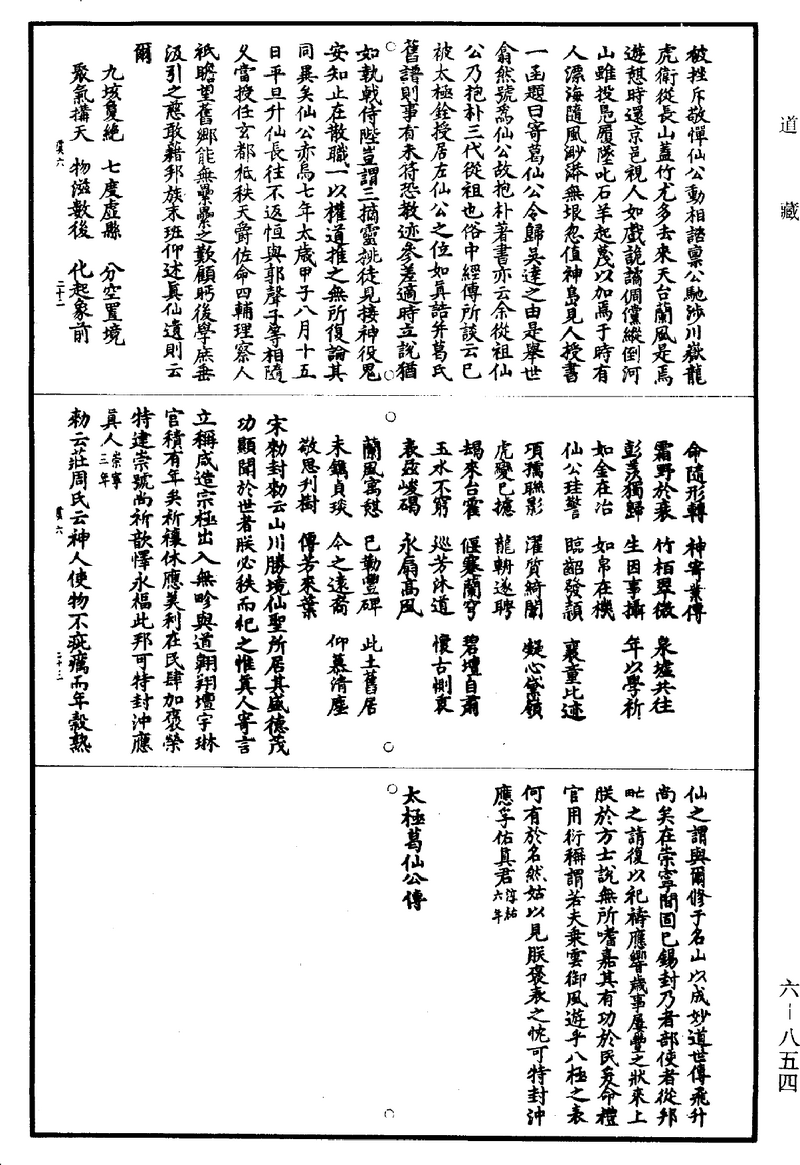 道藏
被挫斥敬憚仙公動相諮禀公馳涉川嶽龍
虎衛從長山蓋竹尤多去來天台蘭風是焉
遊憩時還京邑視人如戲詭譎倜儻縱倒河
山雖投鳧履墜叱石羊起蔑以加焉于時有
人漂海隨風渺漭無垠忽值神島見人授書
一函題曰寄葛仙公令歸吳達之由是舉世
翕然號為仙公故抱朴著書亦云余從祖仙
公乃抱朴三代從祖也俗中經傳所談云已
被太極銓授居左仙公之位如真誥并葛氏
舊譜則事有未符恐教迹參差適時立說猶
如執戟侍陛豈謂三摘靈挑徒見接神役鬼
安知止在散職一以權道推之無所復論其
同異矣仙公赤烏七年太歲甲子八月十五
日平旦升仙長往不返恒與郭聲子等相隨
久當授任玄都祗秩天爵佐命四輔理察人
祇瞻望舊鄉能無纍纍之歎顧眄後學庶垂
汲引之慈敢藉邦族末班仰述真仙遺則云
爾
九垓夐絕　七度虛縣　分空置境
聚氣搆天　物滋數後　化起象前
虞六　二十二
命隨形轉　神寄業傳
霜野於衰　竹栢翠微　泉墟共往
彭羨獨歸　生因事攝　年以學祈
如金在冶　如帛在機
仙公珪警　臨齠發穎　襄童比迹
項孺聯影　濯質綺闈　凝心黛嶺
虎變已摅　龍軿遂聘
朅來台霍　偃蹇蘭穹　碧壇自肅
玉水不窮　巡芳沐道　懷古惻衷
表茲峻碣　永扇高風
蘭風寓憇　已勒豐碑　此土舊居
未鐫貞琰　今之遠裔　仰慕清塵
敬思刋樹　傳芳來葉
宋勑封勑云山川勝境仙聖所居其盛德茂
功顯聞於世者朕必秩而祀之惟真人寄言
立稱咸造宗極出入無畛與道翺翔壇宇琳
官積有年矣祈禳休應美利在民肆加褒榮
特建崇號尚祈歆懌永福此邦可特封沖應
真人崇寧三年
勑云莊周氏云神人使物不疵癘而年穀熟
虞六　二十三
仙之謂與爾修于名山以成妙道世傳飛升
尚矣在崇寧間固已錫封乃者部使者從邦
甿之請復以祀禱應響歲事屢豐之狀來上
朕於方士說無所嗜嘉其有功於民爰命禮
官用衍稱謂若夫乗雲御風遊乎八極之表
何有於名然姑以見朕褒表之忱可特封沖
應孚佑真君淳祐六年
太極葛仙公傳
六－八五四